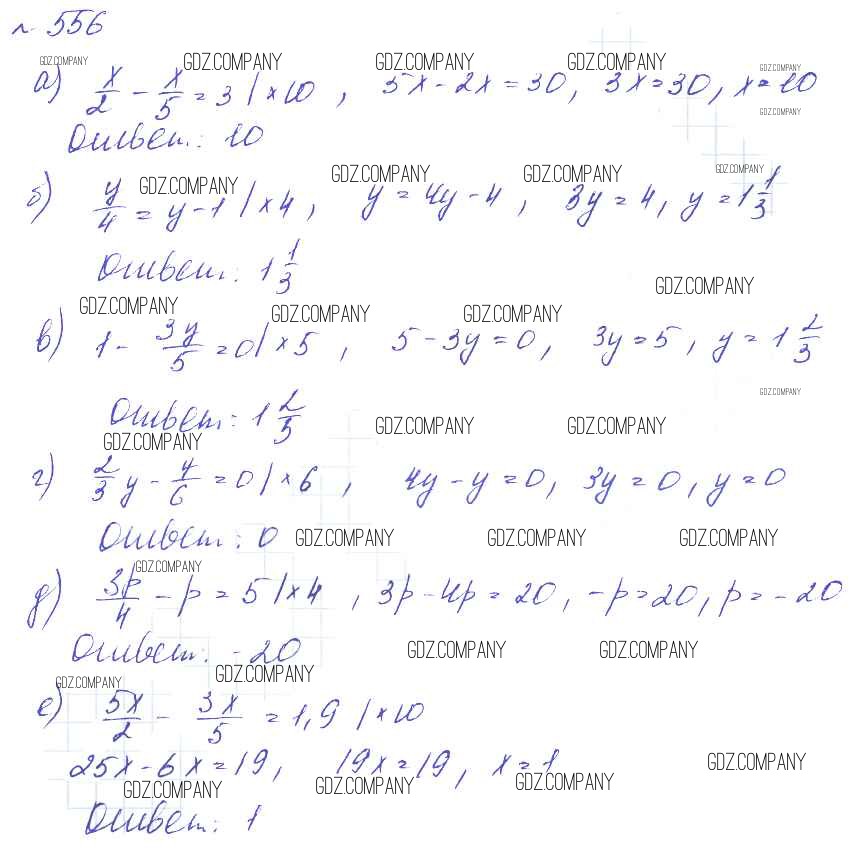 № 556
GDZ.COMPANY GDZ.COMPANY GDZ.COMPANY GDZ.COMPANY GDZ.COMPANY
а) x/2 - x/5 = 3 | × 10 , 5x - 2x = 30, 3x = 30, x = 10
GDZ.COMPANY
Ответ: 10
GDZ.COMPANY GDZ.COMPANY GDZ.COMPANY GDZ.COMPANY
б) y/4 = y - 1 | × 4 , y = 4y - 4 , 3y = 4, y = 1 1/3
Ответ: 1 1/3
GDZ.COMPANY
GDZ.COMPANY GDZ.COMPANY GDZ.COMPANY
в) 1 - 3y/5 = 0 | × 5 , 5 - 3y = 0, 3y = 5, y = 1 2/3
GDZ.COMPANY
Ответ: 1 2/3
GDZ.COMPANY GDZ.COMPANY GDZ.COMPANY
г) 2/3 y - y/6 = 0 | × 6 , 4y - y = 0, 3y = 0, y = 0
Ответ: 0
GDZ.COMPANY GDZ.COMPANY GDZ.COMPANY
GDZ.COMPANY
д) 3p/4 - p = 5 | × 4 , 3p - 4p = 20, -p = 20, p = -20
Ответ: -20
GDZ.COMPANY GDZ.COMPANY
GDZ.COMPANY GDZ.COMPANY
е) 5x/2 - 3x/5 = 1,9 | × 10
25x - 6x = 19, 19x = 19, x = 1
GDZ.COMPANY
GDZ.COMPANY GDZ.COMPANY GDZ.COMPANY
Ответ: 1